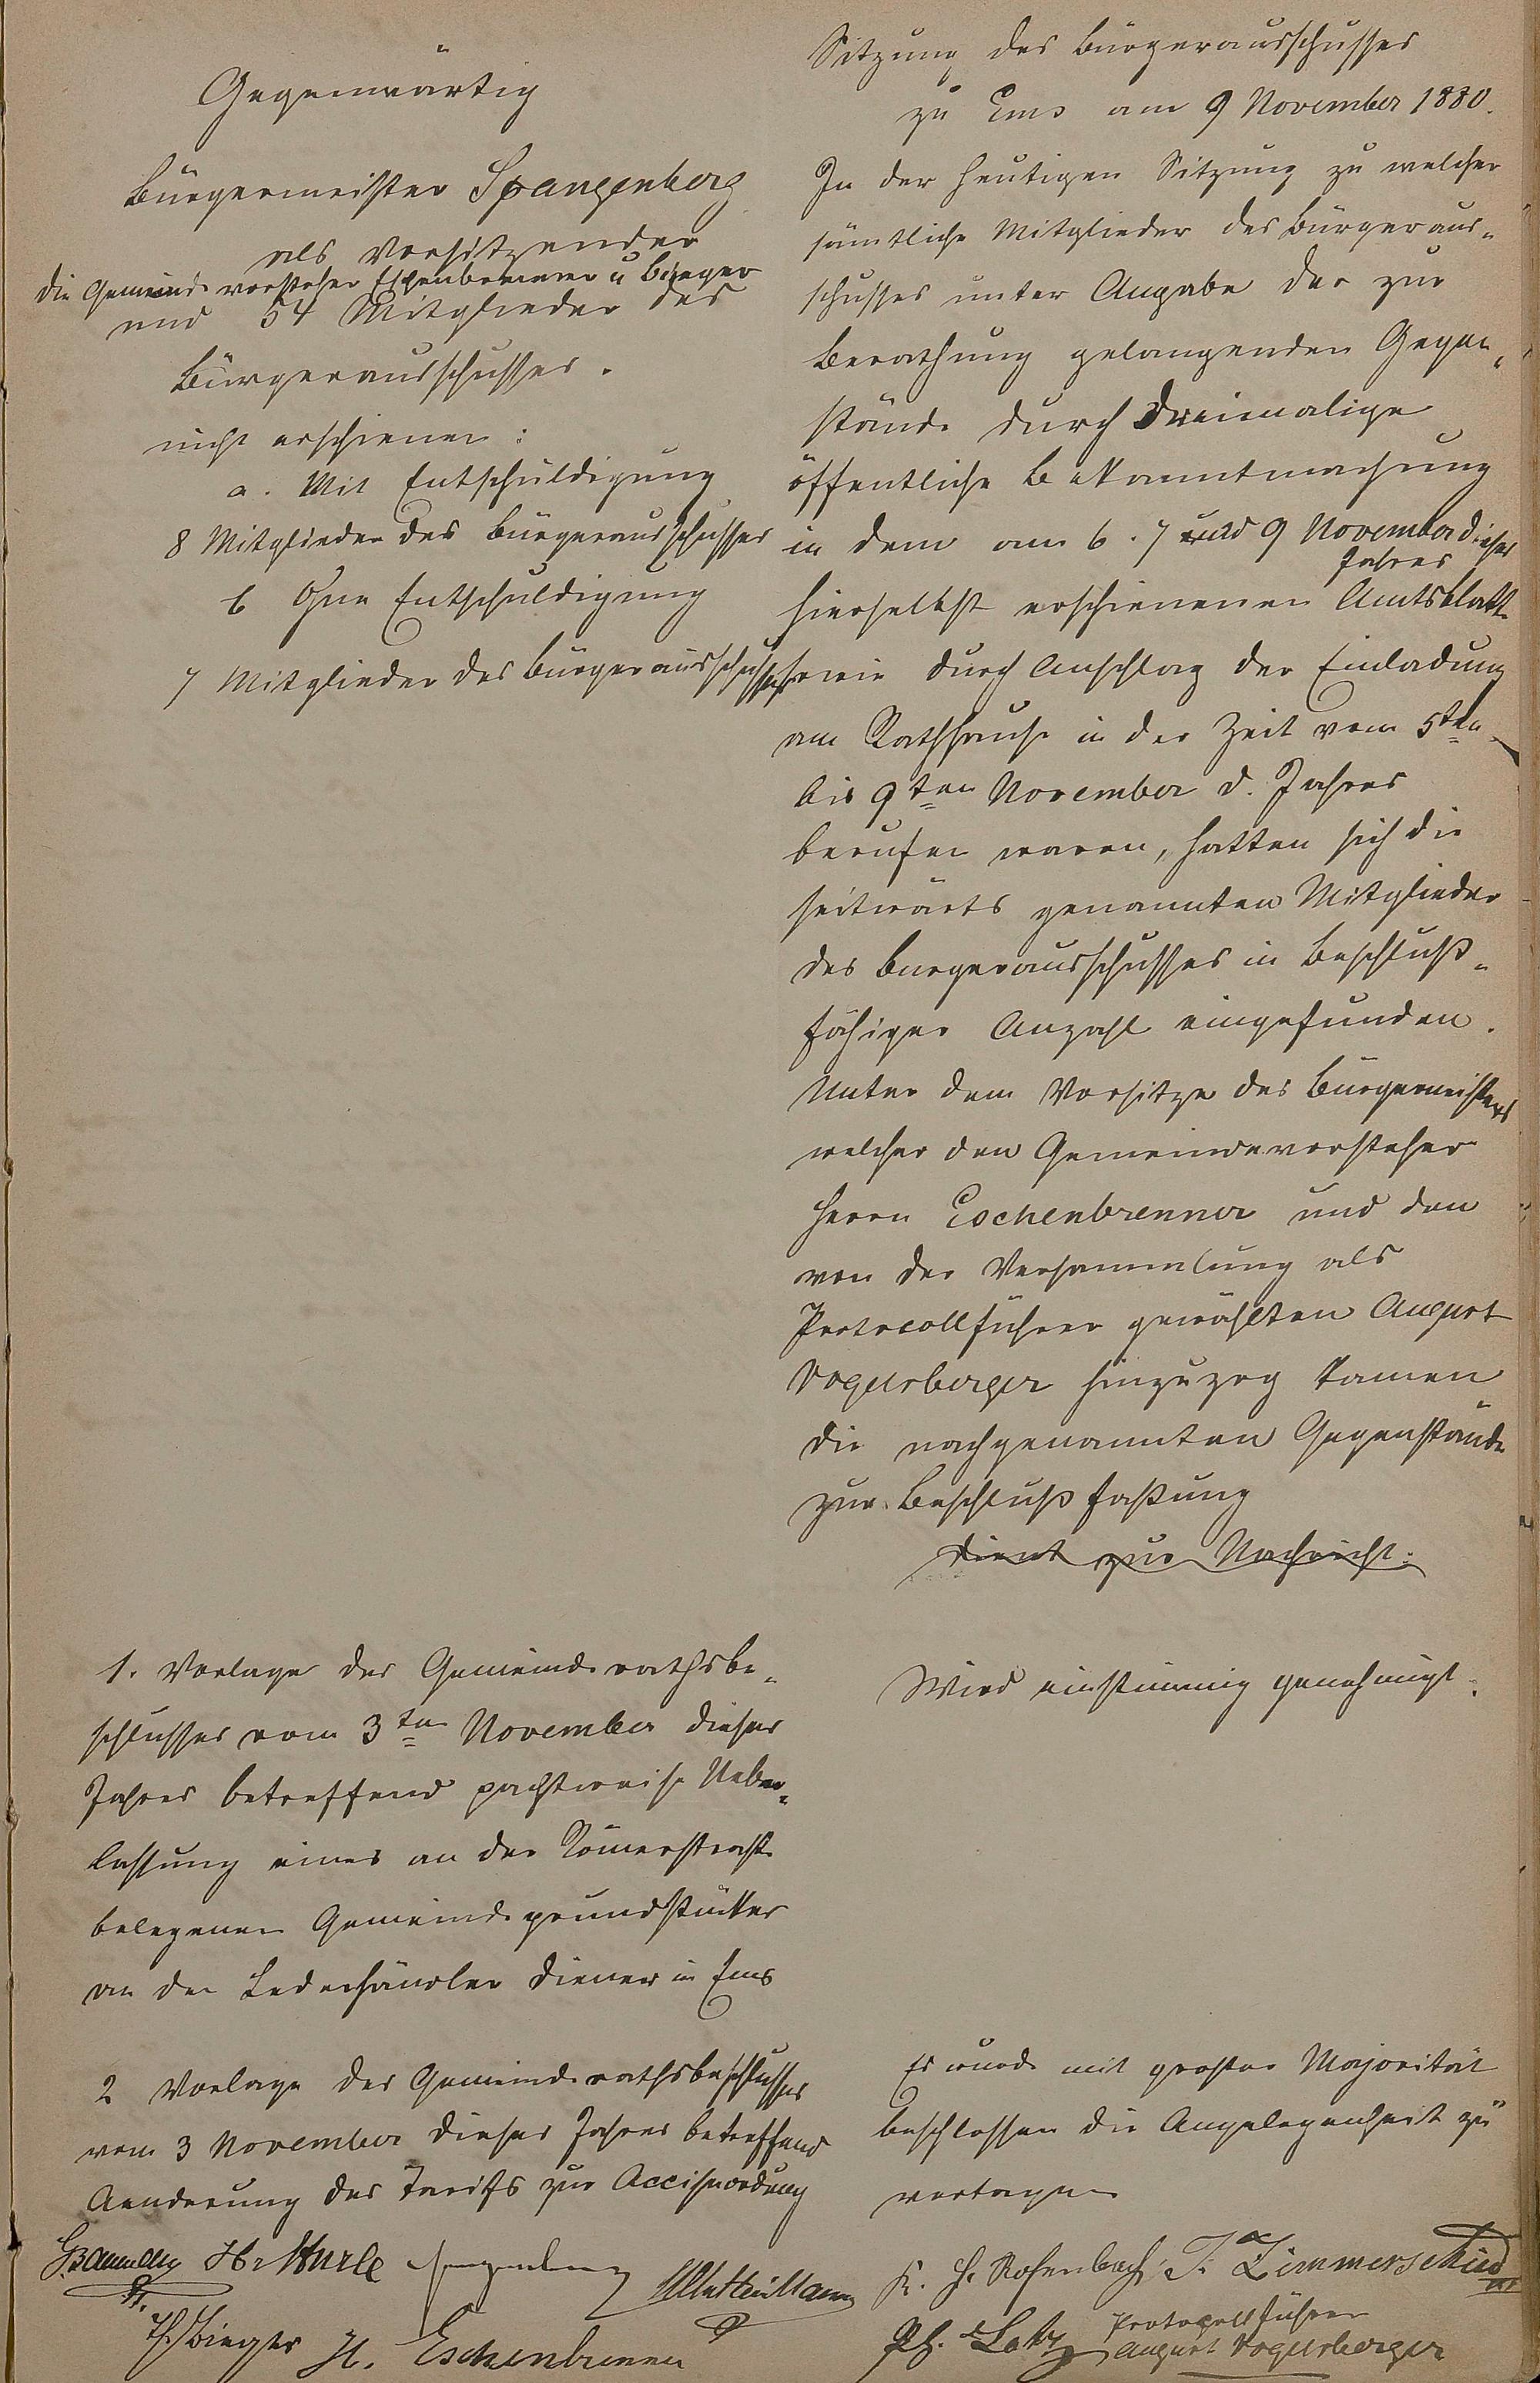 Gegenwärtig
Bürgermeister Spangenberg
als Vorsitzender
die Gemeindevorsteher Eschenbrenner u Bieger
und 54 Mitglieder des
Bürgerausschusses.
nicht erschienen:
a. Mit Entschuldigung
8 Mitglieder des Bürgerausschusses
b Ohne Entschuldigung
7 Mitglieder des Bürgerausschusses
Sitzung des Bürgerausschusses
zu Ems am 9 November 1880.
In der heutigen Sitzung zu welcher
sämtliche Mitglieder des Bürgeraus-
schusses unter Angabe der zur
Berathung gelangenden Gegen-
stände durch dreimalige
öffentliche Bekanntmachung
in dem am 6. 7 und 9 November dieses
Jahres
hierselbst erschienenen Amtsblatt
sowie durch Anschlag der Einladung
am Rathhause in der Zeit vom 5ten
bis 9ten November d. Jahres
berufen waren, hatten sich die
seitwärts genannten Mitglieder
des Burgerausschusses in beschluß-
fähiger Anzahl eingefunden.
Unter dem Vorsitze des Bürgermeisters
welcher den Gemeindevorsteher
Herrn Eschenbrenner und den
von der Versammlung als
Protocollführer gewählten August
Vogelsberger hinzuzog kamen
die nachgenannten Gegenstände
zur Beschlußfaßung
Dient zur Nachricht.
1. Vorlage des Gemeinderathsbe-
schlusses vom 3ten November dieses
Jahres betreffend pachtweise Ueber-
lassung eines an der Römerstraße
belegenen Gemeindegrundstückes
an den Lederhändler Diener in Ems
Wird einstimmig genehmigt.
2 Vorlage des Gemeinderathsbeschlusses
vom 3 November dieses Jahres betreffend
Aenderung des Tarifs zur Acciseordnung
Es wurde mit großer Majorität
beschlossen die Angelegenheit zu
vertagen
Spangenberg
K. H. Rosenbach T. Zimmerschied
Th. Bieger H. Eschenbrenner
Ph. Lotz Protocollführer
August Vogelsberger